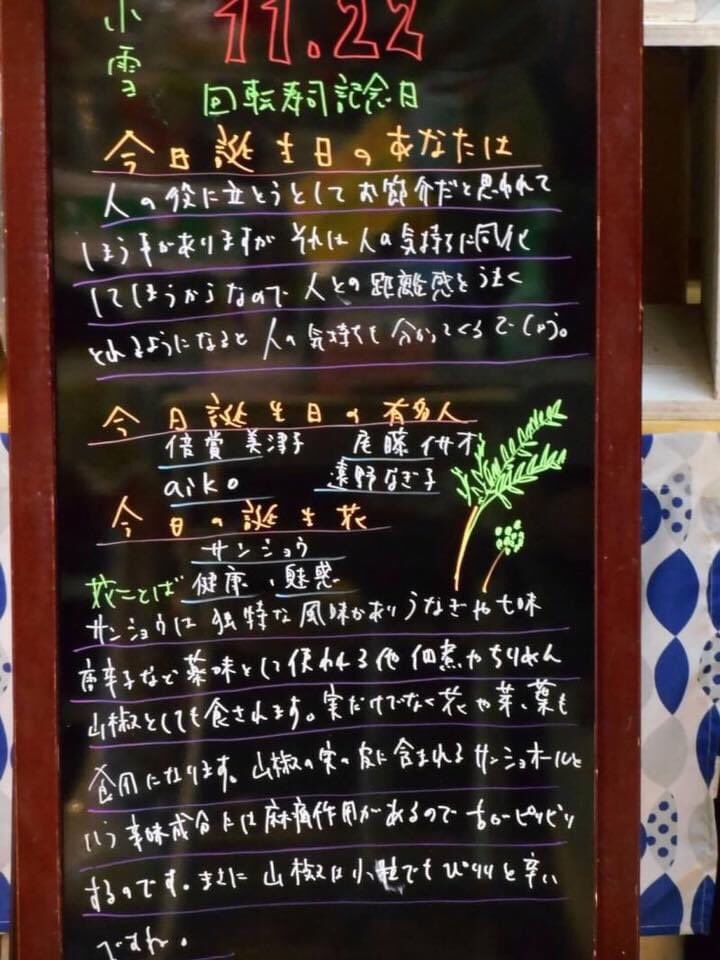 小雪
11.22
回転寿司記念日
今日誕生日のあなたは
人の役に立とうとしてお節介だと思われて
しまう事がありますが それは人の気持ちに同化
してしまうからなので 人との距離感をうまく
とれるようになると 人の気持ちも分かってくるでしょう。
今日誕生日の有名人
倍賞美津子 尾藤イサオ
aiko 遠野なぎ子
今日の誕生花
サンショウ
花ことば 健康、魅惑
サンショウは独特な風味がありうなぎや七味
唐辛子など薬味として使われる他 佃煮やちりめん
山椒としても食されます。実だけでなく花や芽、葉も
食用になります。山椒の実の皮に含まれるサンショオールと
いう辛味成分には麻痺作用があるので 舌がピリピリ
するのです。まさに 山椒は小粒でもぴりりと辛い
ですね。